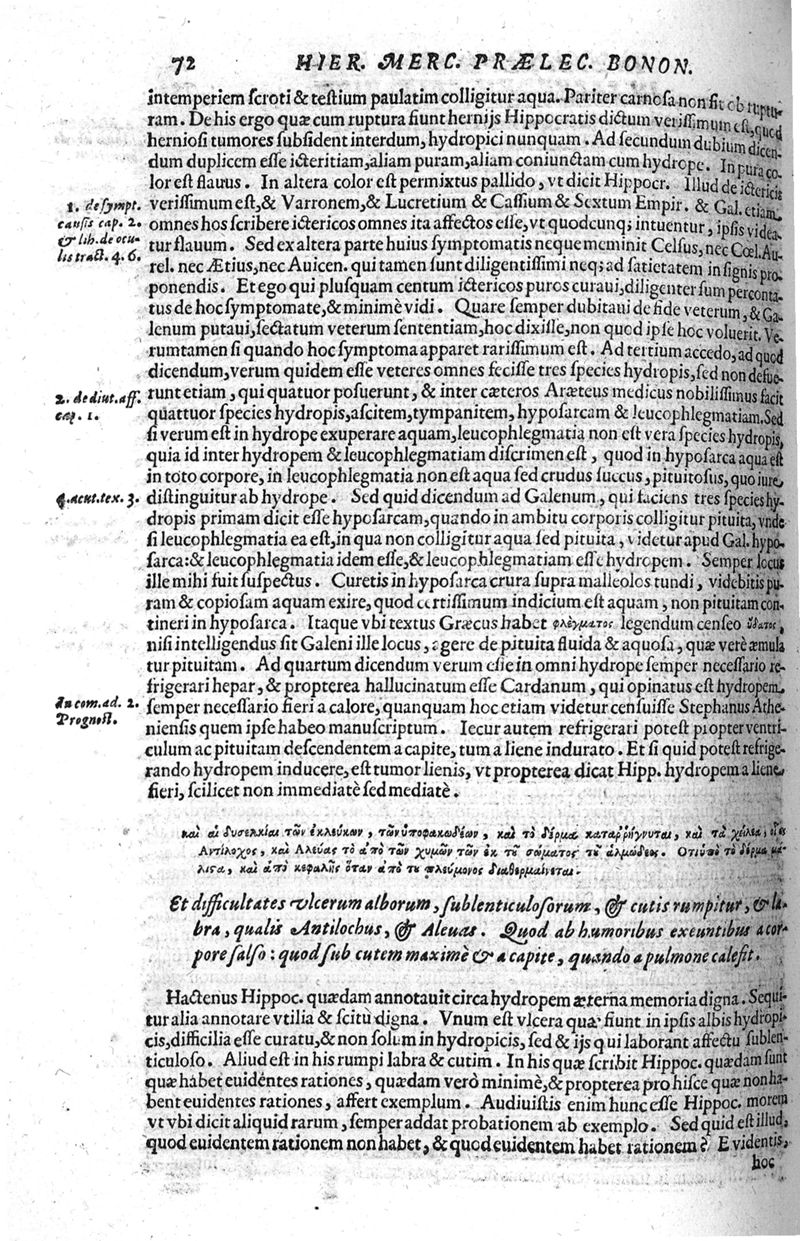 72 HIER. MERC. PRÆLEC. BONON.
intemperiem ſcroti & teſtium paulatim colligitur aqua. Pariter carnoſa non fit ob ruptu-
ram. De his ergo quæ cum ruptura fiunt hernijs Hippocratis dictum veriſſimum eſt, quod
hernioſi tumores ſubſident interdum, hydropici nunquam. Ad ſecundum dubium dicen-
dum duplicem eſſe icteritiam, aliam puram, aliam coniunctam cum hydrope. In pura co-
lor eſt flauus. In altera color eſt permixtus pallido, vt dicit Hippocr. Illud de ictericis
1. de ſympt.
cauſis cap. 2.
& lib. de ocu-
lis tract. 4. 6.
veriſſimum eſt, & Varronem, & Lucretium & Caſſium & Sextum Empir. & Gal. etiam
omnes hos ſcribere ictericos omnes ita affectos eſſe, vt quodcunq; intuentur, ipſis videa-
tur flauum. Sed ex altera parte huius ſymptomatis neque meminit Celſus, nec Cœl. Au-
rel. nec Ætius, nec Auicen. qui tamen ſunt diligentiſſimi neq; ad ſatietatem in ſignis pro-
ponendis. Et ego qui pluſquam centum ictericos puros curaui, diligenter ſum perconta-
tus de hoc ſymptomate, & minimè vidi. Quare ſemper dubitaui de fide veterum, & Ga-
lenum putaui, ſectatum veterum ſententiam, hoc dixiſſe, non quod ipſe hoc voluerit. Ve-
rumtamen ſi quando hoc ſymptoma apparet rariſſimum eſt. Ad tertium accedo, ad quod
dicendum, verum quidem eſſe veteres omnes feciſſe tres ſpecies hydropis, ſed non defue-
2. de diut. aff.
cap. 1.
runt etiam, qui quatuor poſuerunt, & inter cæteros Aræteus medicus nobiliſſimus facit
quattuor ſpecies hydropis, aſcitem, tympanitem, hypoſarcam & leucophlegmatiam. Sed
ſi verum eſt in hydrope exuperare aquam, leucophlegmatia non eſt vera ſpecies hydropis,
quia id inter hydropem & leucophlegmatiam diſcrimen eſt, quod in hypoſarca aqua eſt
in toto corpore, in leucophlegmatia non eſt aqua ſed crudus ſuccus, pituitoſus, quo iure,
4. acut. tex. 3.
diſtinguitur ab hydrope. Sed quid dicendum ad Galenum, qui faciens tres ſpecies hy-
dropis primam dicit eſſe hypoſarcam, quando in ambitu corporis colligitur pituita, vnde
ſi leucophlegmatia ea eſt, in qua non colligitur aqua ſed pituita, videtur apud Gal. hypo-
ſarca: & leucophlegmatia idem eſſe, & leucophlegmatiam eſſe hydropem. Semper locus
ille mihi fuit ſuſpectus. Curetis in hypoſarca crura ſupra malleolos tundi, videbitis pu-
ram & copioſam aquam exire, quod certiſſimum indicium eſt aquam, non pituitam con-
tineri in hypoſarca. Itaque vbi textus Græcus habet φλέγματος legendum cenſeo ὕδατος,
niſi intelligendus ſit Galeni ille locus, agere de pituita fluida & aquoſa, quæ verè æmula
tur pituitam. Ad quartum dicendum verum eſſe in omni hydrope ſemper neceſſario re-
frigerari hepar, & propterea hallucinatum eſſe Cardanum, qui opinatus eſt hydropem
In com. ad. 2.
Prognoſt.
ſemper neceſſario fieri a calore, quanquam hoc etiam videtur cenſuiſſe Stephanus Athe-
nienſis quem ipſe habeo manuſcriptum. Iecur autem refrigerari poteſt propter ventri-
culum ac pituitam deſcendentem a capite, tum a liene indurato. Et ſi quid poteſt refrige-
rando hydropem inducere, eſt tumor lienis, vt propterea dicat Hipp. hydropem a liene
fieri, ſcilicet non immediatè ſed mediatè.
καὶ αἱ δυσελκίαι τῶν ἐκλεύκων, τῶν ὑποφακωδέων, καὶ τὸ δέρμα καταῤῥήγνυται, καὶ τὰ χείλεα, οἷος
Αντίλοχος, καὶ Αλεύας τὸ ἀπὸ τῶν χυμῶν τῶν ἐκ τοῦ σώματος τοῦ ἁλμώδεος. Οτι ὑπὸ τὸ δέρμα μά-
λιστα, καὶ ἀπὸ κεφαλῆς ὅταν ἀπὸ του πλεύμονος διαθερμαίνεται.
Et difficultates vlcerum alborum, ſublenticuloſorum, & cutis rumpitur, & la-
bra, qualis Antilochus, & Aleuas. Quod ab humoribus exeuntibus a cor-
pore ſalſo: quod ſub cutem maximè & a capite, quando a pulmone calefit.
Hactenus Hippoc. quædam annotauit circa hydropem æterna memoria digna. Sequi-
tur alia annotare vtilia & ſcitu digna. Vnum eſt vlcera quæ fiunt in ipſis albis hydropi-
cis, difficilia eſſe curatu, & non ſolum in hydropicis, ſed & ijs qui laborant affectu ſublen-
ticuloſo. Aliud eſt in his rumpi labra & cutim. In his quæ ſcribit Hippoc. quædam ſunt
quæ habēt euidētes rationes, quædam verò minimè, & propterea pro hiſce quæ non ha-
bent euidentes rationes, affert exemplum. Audiuiſtis enim hunc eſſe Hippoc. morem
vt vbi dicit aliquid rarum, ſemper addat probationem ab exemplo. Sed quid eſt illud,
quod euidentem rationem non habet, & quod euidentem habet rationem? Euidentis,
hoc